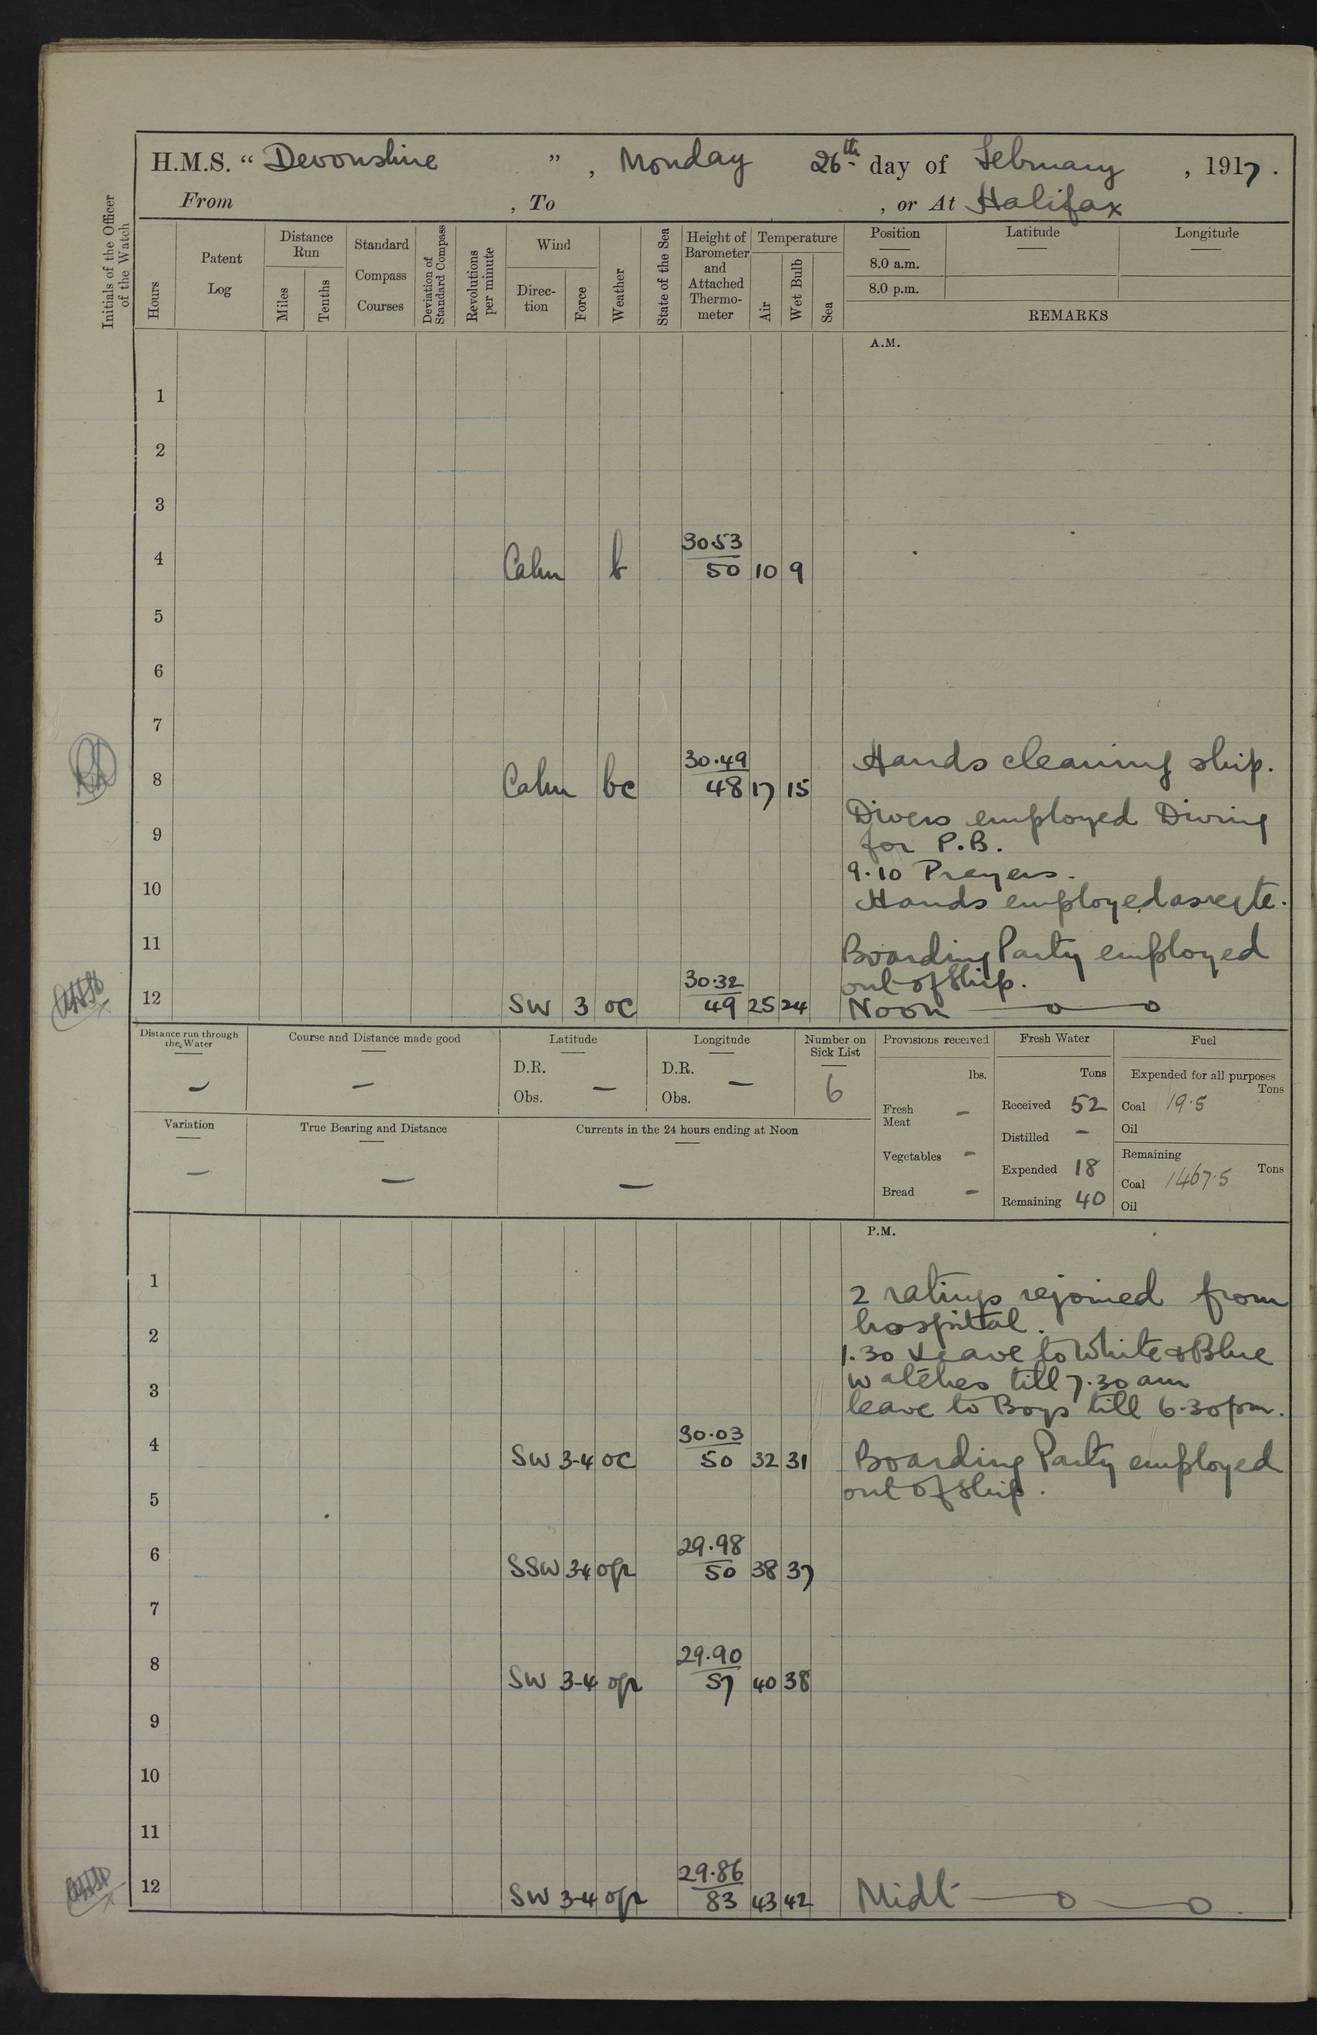 H.M.S. “ Devonshire ” , Monday 26th day of February , 1917 .
From , To , or At Halifax
Initials of the Officer of the Watch
Hours
Patent Log
Distance Run
Miles
Tenths
Standard Compass Courses
Deviation of Standard Compass
Revolutions per minute
Wind
Direction
Force
Weather
State of the Sea
Height of Barometer and Attached Thermometer
Temperature
Air
Wet Bulb
Sea
Position Latitude Longitude
8.0 a.m.
8.0 p.m.
REMARKS
A.M.
1
2
3
4 Calm b 30.53 50 10 9
5
6
7
8 Calm bc 30.49 48 17 15
Hands cleaning ship.
Divers employed Diving
9
for P.B.
9.10 Prayers.
10
Hands employed as reqte.
11
Boarding Party employed
out of Ship.
12 SW 3 oc 30.32 49 25 24 Noon
Distance run through the Water —
Course and Distance made good —
Latitude D.R. Obs. —
Longitude D.R. Obs. —
Number on Sick List 6
Variation —
True Bearing and Distance —
Currents in the 24 hours ending at Noon —
Provisions received lbs.
Fresh Meat —
Vegetables —
Bread —
Fresh Water Tons
Received 52
Distilled —
Expended 18
Remaining 40
Fuel
Expended for all purposes Tons
Coal 19.5
Oil
Remaining Tons
Coal 1467.5
Oil
P.M.
1
2 ratings rejoined from
hospital.
2
1.30 Leave to White & Blue
watches till 7.30 am
3
leave to Boys till 6.30pm.
4 SW 3-4 oc 30.03 50 32 31
Boarding Party employed
out of Ship.
5
6 SSW 3-4 opr 29.98 50 38 37
7
8 SW 3-4 opr 29.90 57 40 38
9
10
11
12 SW 3-4 opr 29.86 83 43 42 Midt